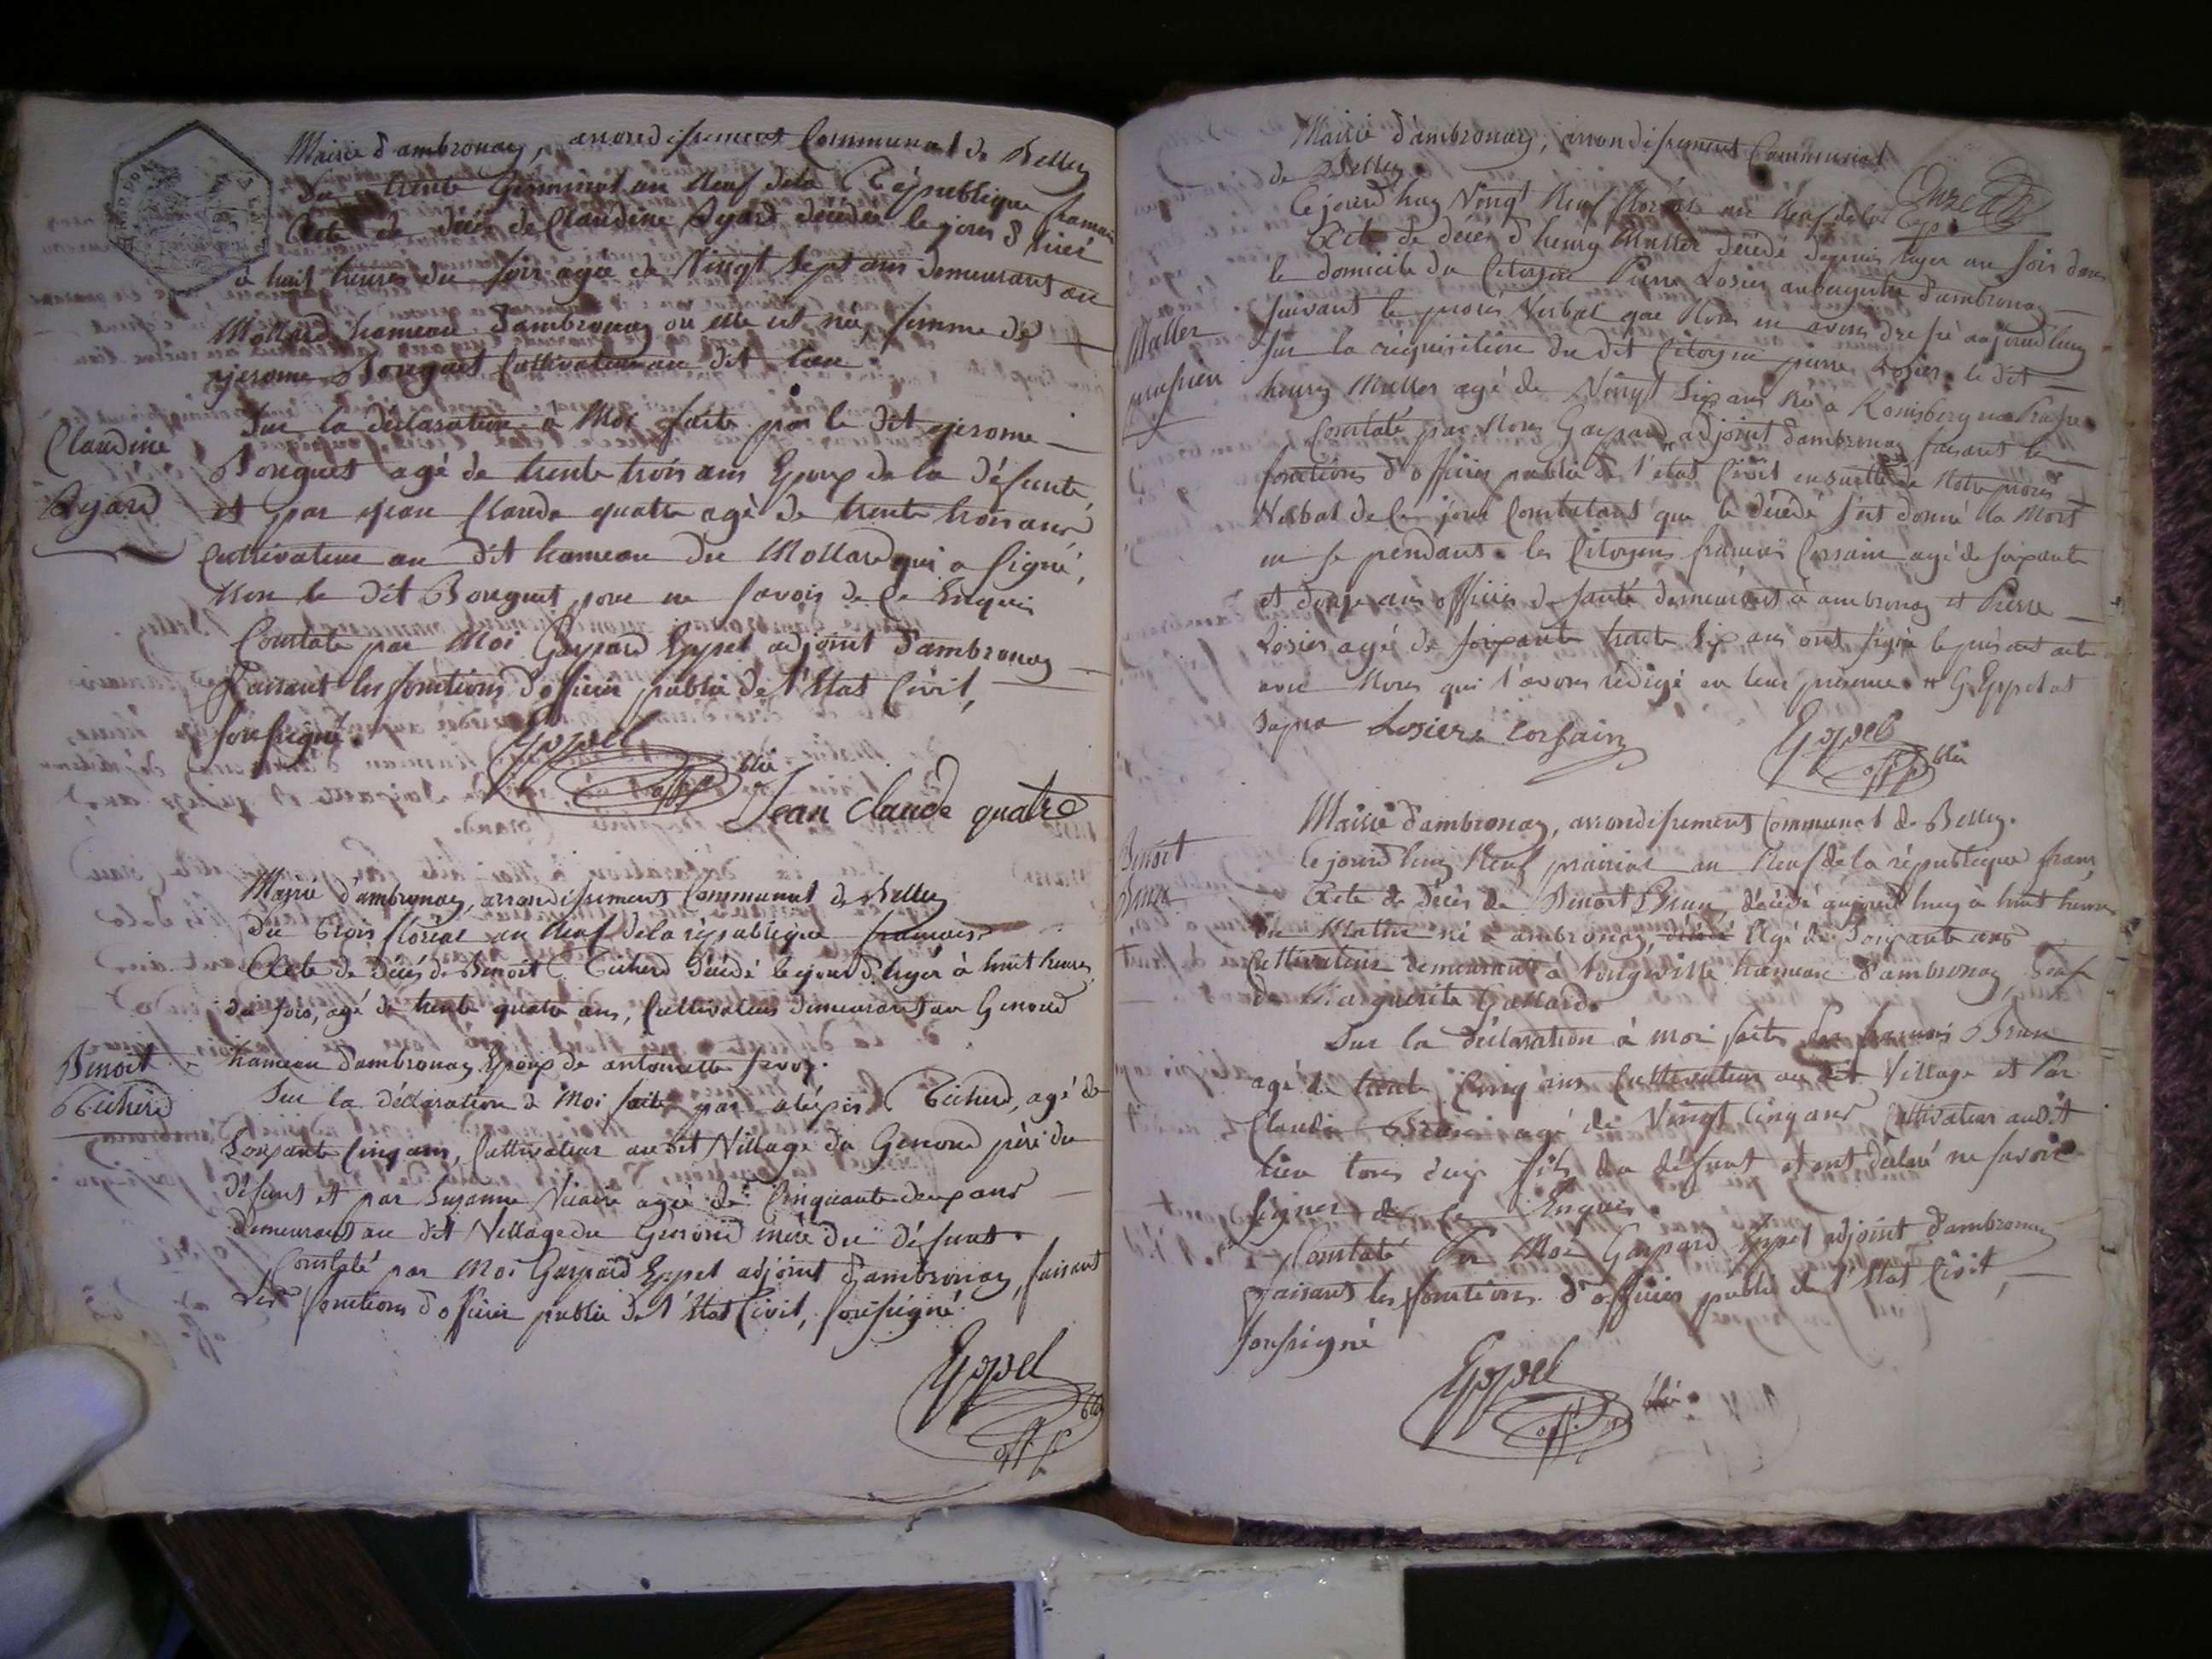 Mairie d'ambronay, arrondissement Communal de Belley
Du trente Germinal an Neuf de la République francais
Acte de décès de Claudine Ayard décédée le jour d'hier
à huit heures du soir agée de Vingt Sept ans demeurant au
Mollard hameau d'ambronay ou elle est née, femme de
jerome Bouguet Cultivateur au dit lieu
Sur la déclaration à Moi faite par le dit jerome
Claudine
Ayard
Bouguet agé de trente trois ans Epoux de la défunte,
et par jean Claude quatre agé de trente trois ans
Cultivateur au dit hameau du Mollard qui a signé,
Non le dit Bouguet pour ne savoir de ce Enquis
Constaté par Moi Gaspard Eppel adjoint d'ambronay
faisant les fonctions d'officier public de l'Etat Civil,
soussigné.
Eppel
off. p. blic
Jean Claude quatre
Mairie d'ambronay, arrondissement Communal de Belley
Du trois floréal an Neuf de la république francaise
Acte de décès de Benoit Ticherd décédé le jour d'hyer à huit heures
du soir, agé de trente quatre ans, Cultivateur demeurant au Genoud
Benoit
hameau d'ambronay Epoux de antoinette
Sur la déclaration à Moi faite par alexis agé de
Soixante Cinq ans, Cultivateur au dit Village du Genoud père du
défunt et par Suzanne Vicaire agée de Cinquante deux ans
demeurant au dit Village du Genoud mère du défunt.
Constaté par Moi Gaspard Eppel adjoint d'ambronay, faisant
Les fonctions d'officier public de l'Etat Civil, soussigné.
Eppel
off. p. blic
Mairie d'ambronay, arrondissement Communal
de Belley.
Onze
Cejourd'huy Vingt Neuf floréal an Neuf de la
Acte de décès d'henry Muller décédé depuis hyer au soir dans
le domicile du Citoyen Pierre Losier aubergiste d'ambronay
Muller
prussien
suivant le procès Verbal que Nous en avons dressé aujourd'huy
sur la réquisition du dit Citoyen pierre Losier. le dit
henry Muller agé de Vingt Six ans Né à Konisberg en Prusse
Constaté par Nous Gaspard adjoint d'ambronay faisant les
fonctions d'officier public de l'etat Civil ensuitte de Notre procès
Verbal de Ce jour Constatant que le décédé s'est donné la Mort
en se pendant. les Citoyens francois Corsain agé de soixante
et douze ans officier de santé demeurant à ambronay et Pierre
Losier agé de soixante trente Six ans ont signé le présent acte
avec Nous qui l'avons rédigé en leur présence. # G. Eppel et
Losier Corsain
Eppel
off. p. blic
Mairie d'ambronay, arrondissement Communal de Belley.
Benoit
Brun
Cejourd'huy Neuf prairial an Neuf de la république franc
Acte de décès de Benoit Brun, décédé aujourd'huy à huit heures
du Matin né à ambronay, Agé de Soixante ans
Cultivateur demeurant à Longeville hameau d'ambronay, Veuf
de Marguerite Gallard.
Sur la déclaration à moi faite par francois Brun
agé de trente Cinq ans Cultivateur au dit Village et Par
Claude Brun agé de Vingt Cinq ans Cultivateur audit
lieu tous deux fils du défunt et ont déclaré ne savoir
signer de ce Enquis.
Constaté Par Moi Gaspard Eppel adjoint d'ambronay
faisant les fonctions d'officier public de l'Etat Civil,
soussigné
Eppel
off. p. blic